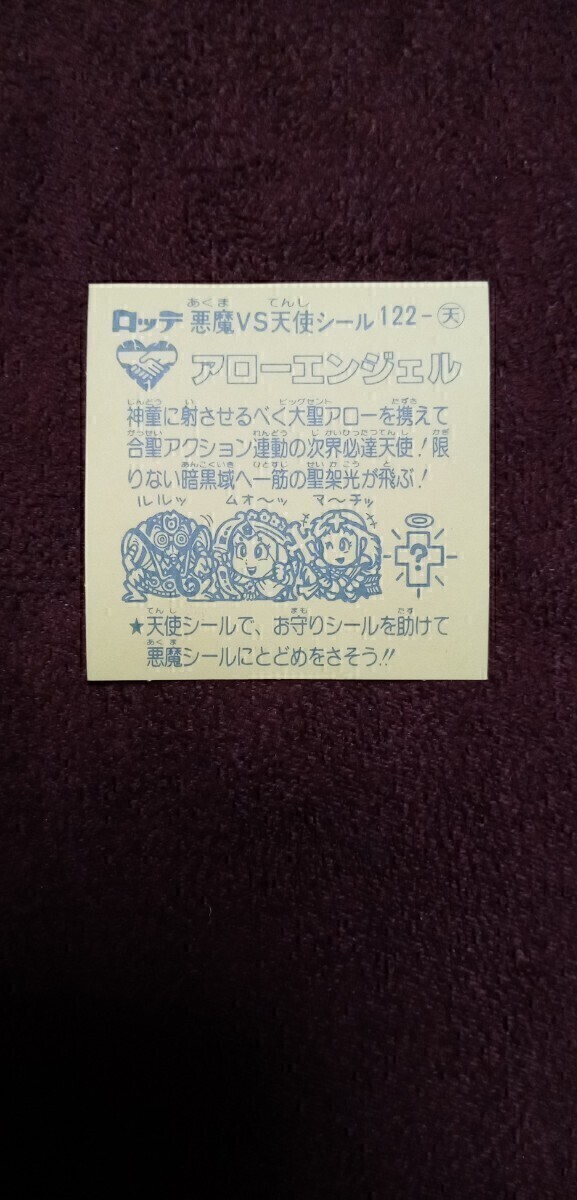 ロッテ 悪魔VS天使シール 122-天
アローエンジェル
神童に射させるべく大聖アローを携えて
合聖アクション連動の次界必達天使！限
りない暗黒域へ一筋の聖架光が飛ぶ！
ルルッ ムォ〜ッ マ〜チッ
?
★天使シールで、お守りシールを助けて
悪魔シールにとどめをさそう!!